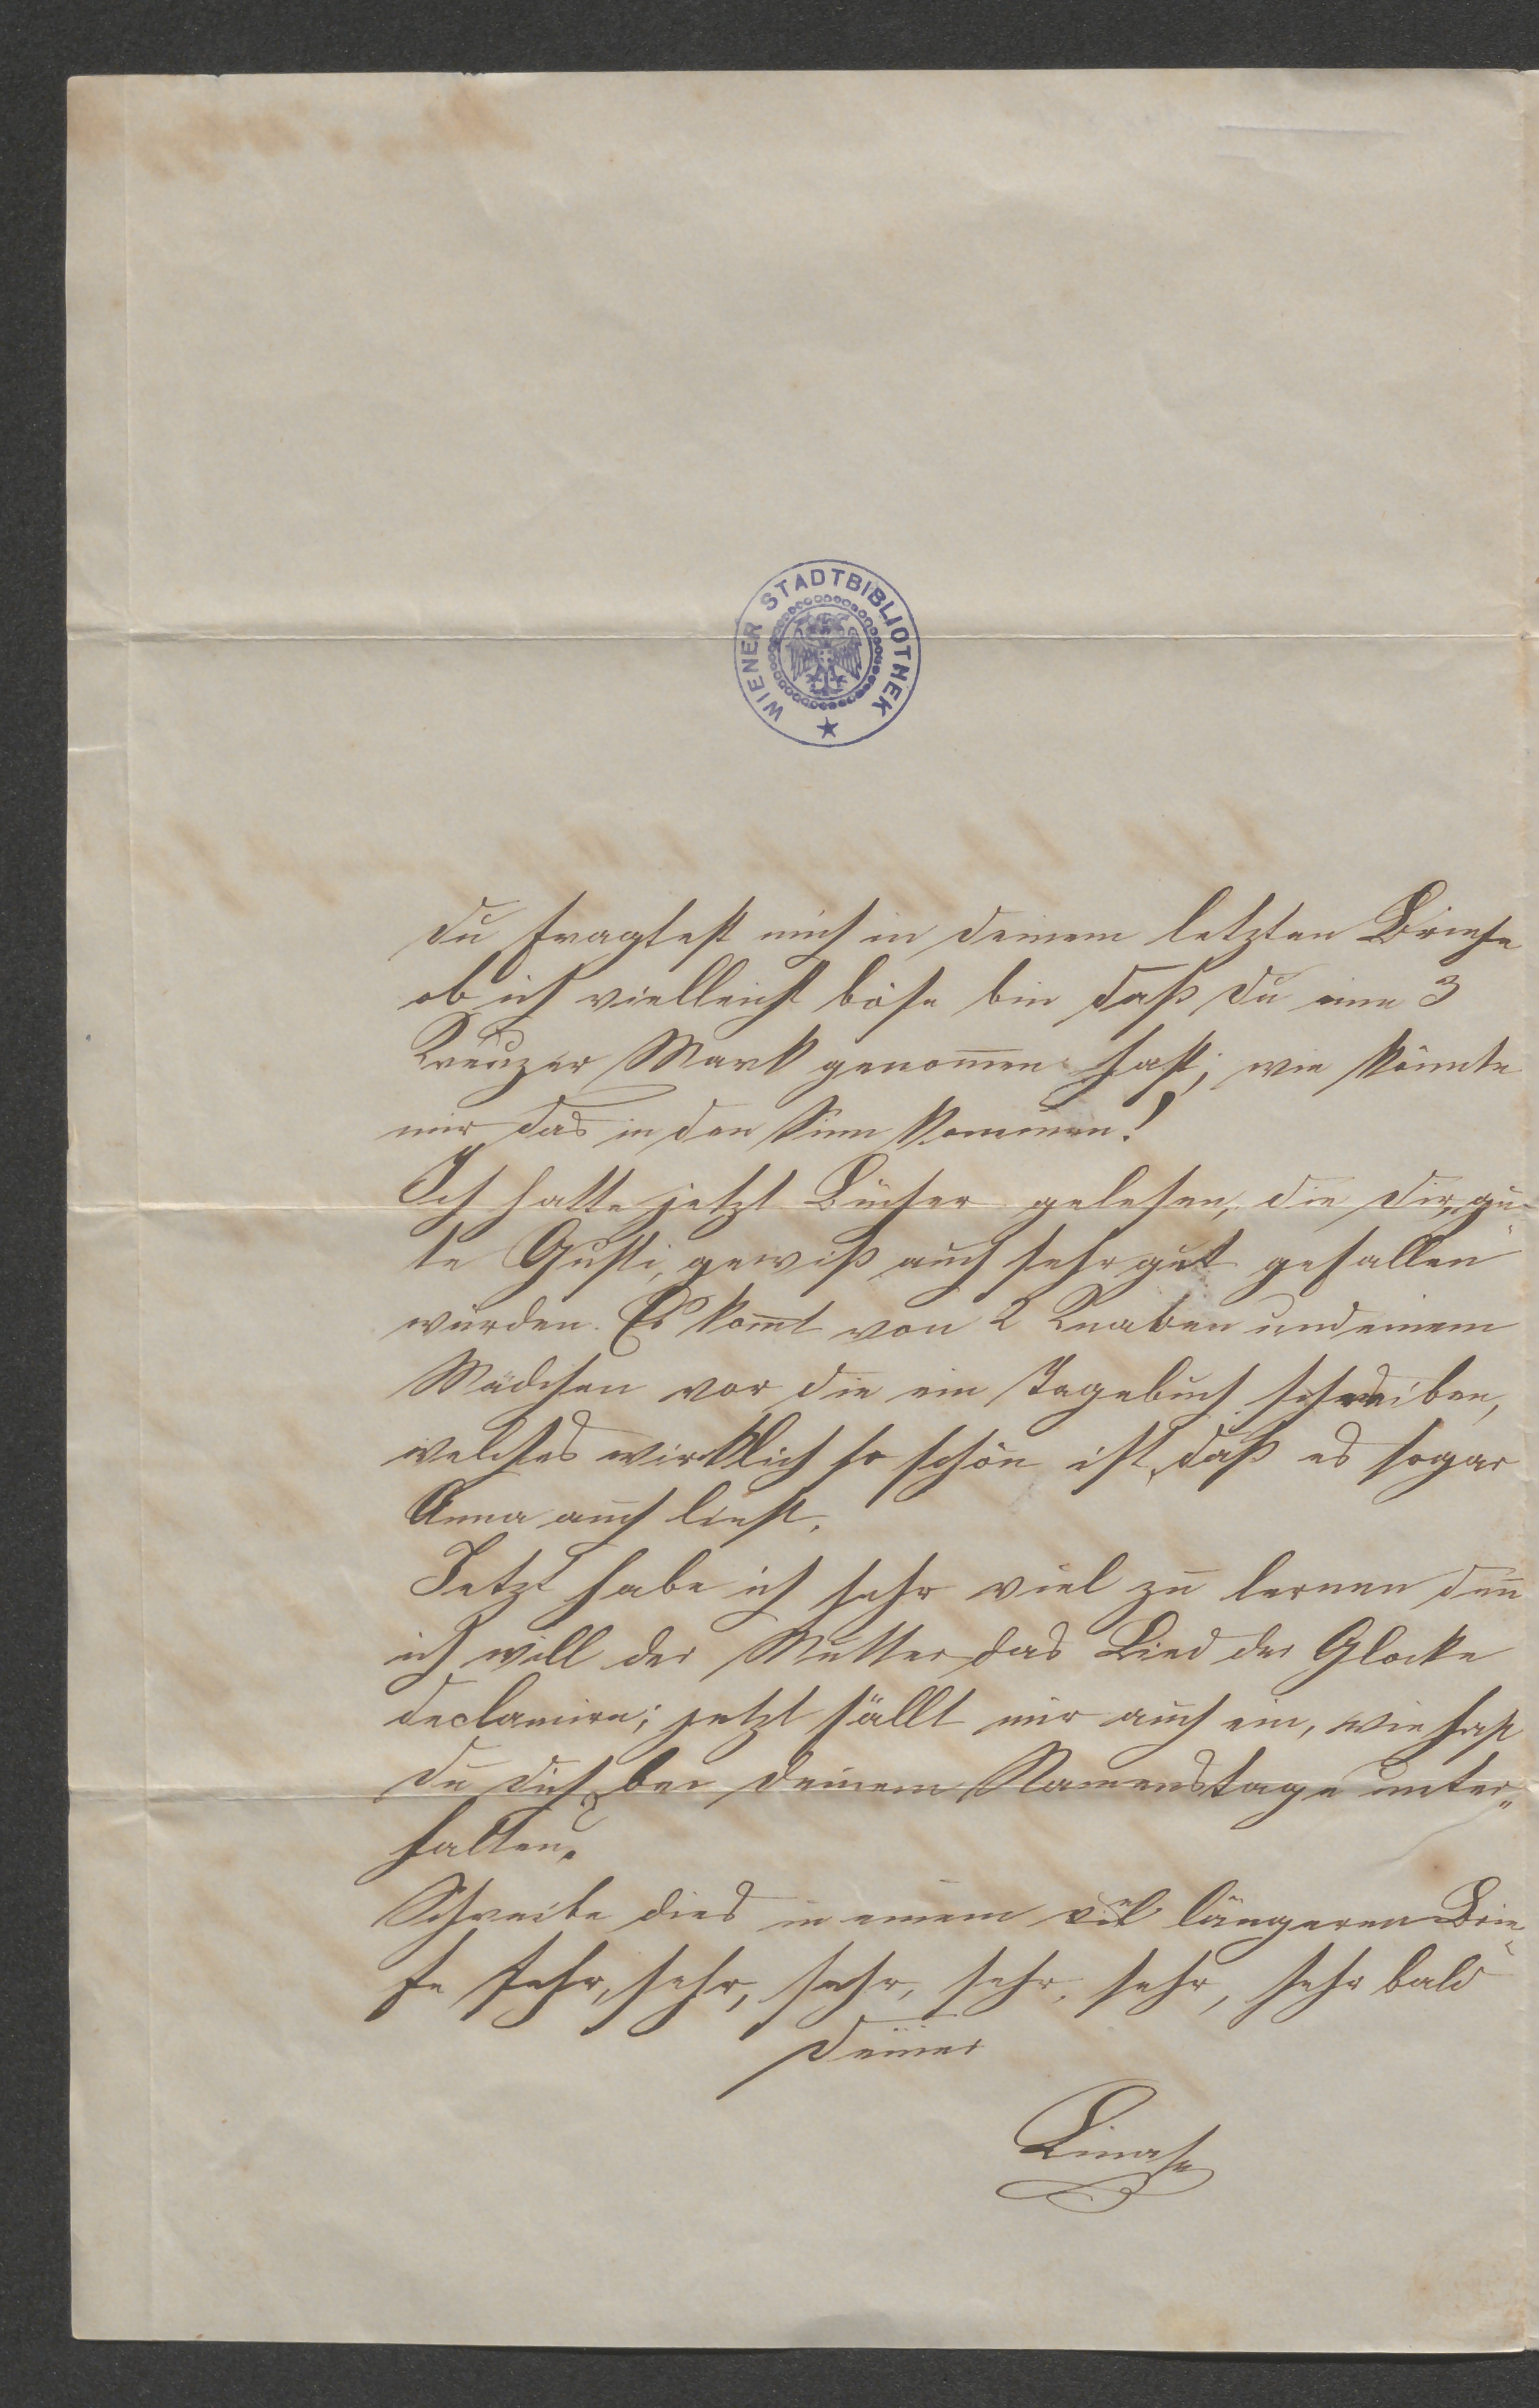 WIENER STADTBIBLIOTHEK
Du fragtest mich in deinem letzten Briefe
ob ich vielleicht böse bin daß du eine 3
Kreuzer Mark genom̄en hast; wie könnte
mir das in den Sinn kommen!
Ich hatte jetzt Bücher gelesen, die dir, gu-
te Gusti, gewiß auch sehr gut gefallen
würden. Es kom̄t von 2 Knaben und einem
Mädchen vor die ein Tagebuch schreiben,
welches wirklich so schön ist, daß es sogar
Anna auch liest.
Jetzt habe ich sehr viel zu lernen den̄
ich will der Mutter das Lied der Glocke
declamiren; jetzt fällt mir auch ein, wie hast
du dich bei deinem Namenstage unter„
halten.
Schreibe dies in einem viel längeren Brie„
fe sehr, sehr, sehr, sehr, sehr, sehr bald
deiner